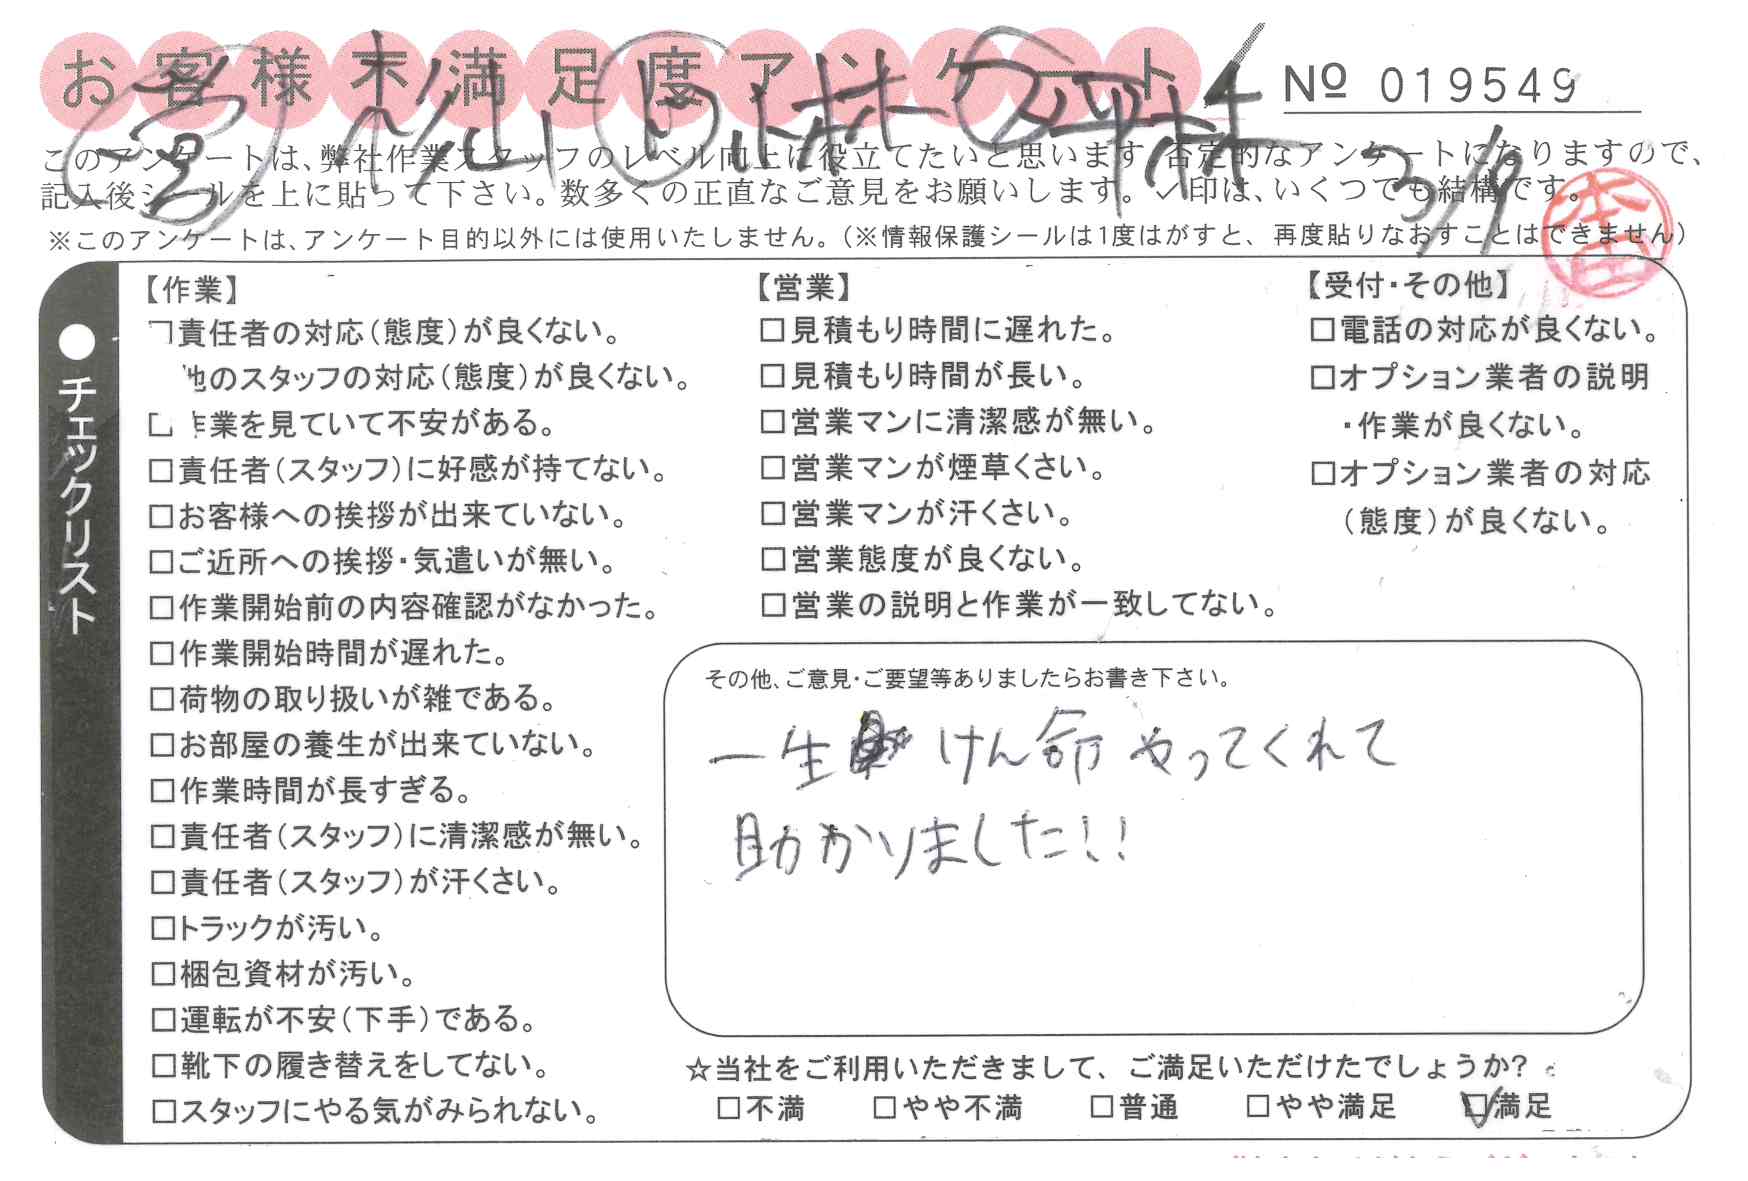 お客様不満足度アンケート
№ 019549
小林
平林
3/9
このアンケートは、弊社作業スタッフのレベル向上に役立てたいと思います。否定的なアンケートになりますので、
記入後シールを上に貼って下さい。数多くの正直なご意見をお願いします。✓印は、いくつでも結構です。
本田
※このアンケートは、アンケート目的以外には使用いたしません。(※情報保護シールは1度はがすと、再度貼りなおすことはできません)
●チェックリスト
【作業】
責任者の対応(態度)が良くない。
他のスタッフの対応(態度)が良くない。
作業を見ていて不安がある。
□責任者(スタッフ)に好感が持てない。
□お客様への挨拶が出来ていない。
□ご近所への挨拶・気遣いが無い。
□作業開始前の内容確認がなかった。
□作業開始時間が遅れた。
□荷物の取り扱いが雑である。
□お部屋の養生が出来ていない。
□作業時間が長すぎる。
□責任者(スタッフ)に清潔感が無い。
□責任者(スタッフ)が汗くさい。
□トラックが汚い。
□梱包資材が汚い。
□運転が不安(下手)である。
□靴下の履き替えをしてない。
□スタッフにやる気がみられない。
【営業】
□見積もり時間に遅れた。
□見積もり時間が長い。
□営業マンに清潔感が無い。
□営業マンが煙草くさい。
□営業マンが汗くさい。
□営業態度が良くない。
□営業の説明と作業が一致してない。
【受付・その他】
□電話の対応が良くない。
□オプション業者の説明
・作業が良くない。
□オプション業者の対応
(態度)が良くない。
その他、ご意見・ご要望等ありましたらお書き下さい。
一生けん命やってくれて
助かりました!!
☆当社をご利用いただきまして、ご満足いただけたでしょうか?
□不満 □やや不満 □普通 □やや満足 ☑満足